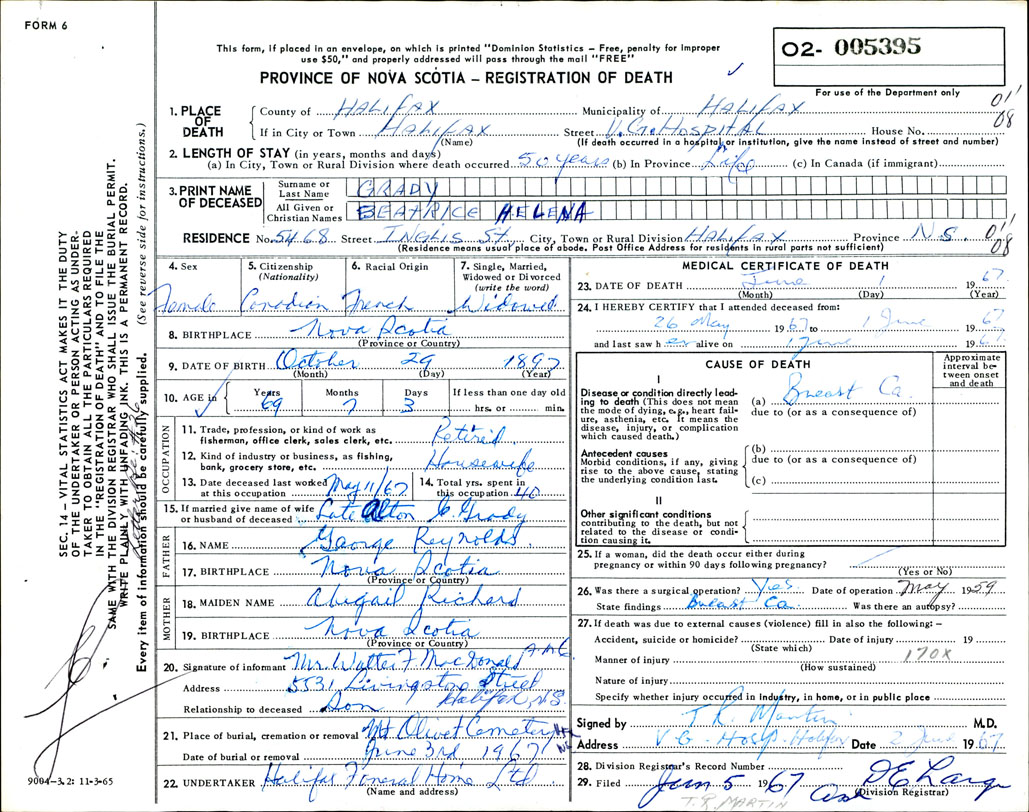 FORM 6
This form, if placed in an envelope, on which is printed "Dominion Statistics – Free, penalty for improper
use $50," and properly addressed will pass through the mail "FREE"
PROVINCE OF NOVA SCOTIA – REGISTRATION OF DEATH
O2- 005395
For use of the Department only
01'
08
1. PLACE OF DEATH
County of HALIFAX Municipality of HALIFAX
If in City or Town HALIFAX Street V.G. HOSPITAL House No.
(Name) (If death occurred in a hospital or institution, give the name instead of street and number)
2. LENGTH OF STAY (in years, months and days)
(a) In City, Town or Rural Division where death occurred 50 years (b) In Province Life (c) In Canada (if immigrant)
3. PRINT NAME OF DECEASED
Surname or Last Name GRADY
All Given or Christian Names BEATRICE HELENA
RESIDENCE No. 5468 Street INGLIS ST City, Town or Rural Division HALIFAX Province N.S. 01'
08
(Residence means usual place of abode. Post Office Address for residents in rural parts not sufficient)
4. Sex
Female
5. Citizenship
(Nationality)
Canadian
6. Racial Origin
French
7. Single, Married,
Widowed or Divorced
(write the word)
Widowed
8. BIRTHPLACE Nova Scotia
(Province or Country)
9. DATE OF BIRTH October 29 1897
(Month) (Day) (Year)
10. AGE in
Years Months Days If less than one day old
69 7 3 hrs. or min.
OCCUPATION
11. Trade, profession, or kind of work as
fisherman, office clerk, sales clerk, etc. Retired
12. Kind of industry or business, as fishing,
bank, grocery store, etc. Housewife
13. Date deceased last worked
at this occupation May 11/67
14. Total yrs. spent in
this occupation 40
15. If married give name of wife
or husband of deceased Late Alton C. Grady
FATHER
16. NAME George Reynolds
17. BIRTHPLACE Nova Scotia
(Province or Country)
MOTHER
18. MAIDEN NAME Abigail Richard
19. BIRTHPLACE Nova Scotia
(Province or Country)
20. Signature of informant Mr. Walter F MacDonald
Address 5531 Livingstone Street
Halifax, N.S.
Relationship to deceased Son
21. Place of burial, cremation or removal Mt Olivet Cemetery
Date of burial or removal June 3rd 1967
22. UNDERTAKER Halifax Funeral Home Ltd
(Name and address)
MEDICAL CERTIFICATE OF DEATH
23. DATE OF DEATH June 1 1967
(Month) (Day) (Year)
24. I HEREBY CERTIFY that I attended deceased from:
26 May 1967 to 1 June 1967
and last saw her alive on 1 June 1967
CAUSE OF DEATH
Approximate
interval be-
tween onset
and death
I
Disease or condition directly lead-
ing to death (This does not mean
the mode of dying, e.g., heart fail-
ure, asthenia, etc. It means the
disease, injury, or complication
which caused death.)
(a) Breast Ca.
due to (or as a consequence of)
Antecedent causes
Morbid conditions, if any, giving
rise to the above cause, stating
the underlying condition last.
(b)
due to (or as a consequence of)
(c)
II
Other significant conditions
contributing to the death, but not
related to the disease or condi-
tion causing it.
25. If a woman, did the death occur either during
pregnancy or within 90 days following pregnancy?
(Yes or No)
26. Was there a surgical operation? Yes Date of operation May 1959
State findings Breast Ca Was there an autopsy?
27. If death was due to external causes (violence) fill in also the following: –
Accident, suicide or homicide? Date of injury 19
(State which)
Manner of injury 170X
(How sustained)
Nature of injury
Specify whether injury occurred in industry, in home, or in public place
Signed by T R Martin M.D.
Address V G Hosp. Halifax Date 2 June 1967
28. Division Registrar's Record Number
29. Filed Jun 5 1967
(Division Registrar)
T.R. MARTIN
SEC. 14 – VITAL STATISTICS ACT MAKES IT THE DUTY
OF THE UNDERTAKER OR PERSON ACTING AS UNDER-
TAKER TO OBTAIN ALL THE PARTICULARS REQUIRED
IN THE "REGISTRATION OF DEATH" AND TO FILE THE
SAME WITH THE DIVISION REGISTRAR WHO SHALL ISSUE THE BURIAL PERMIT.
WRITE PLAINLY WITH UNFADING INK. THIS IS A PERMANENT RECORD.
Every item of information should be carefully supplied. (See reverse side for instructions.)
9004-3.2: 11-3-65